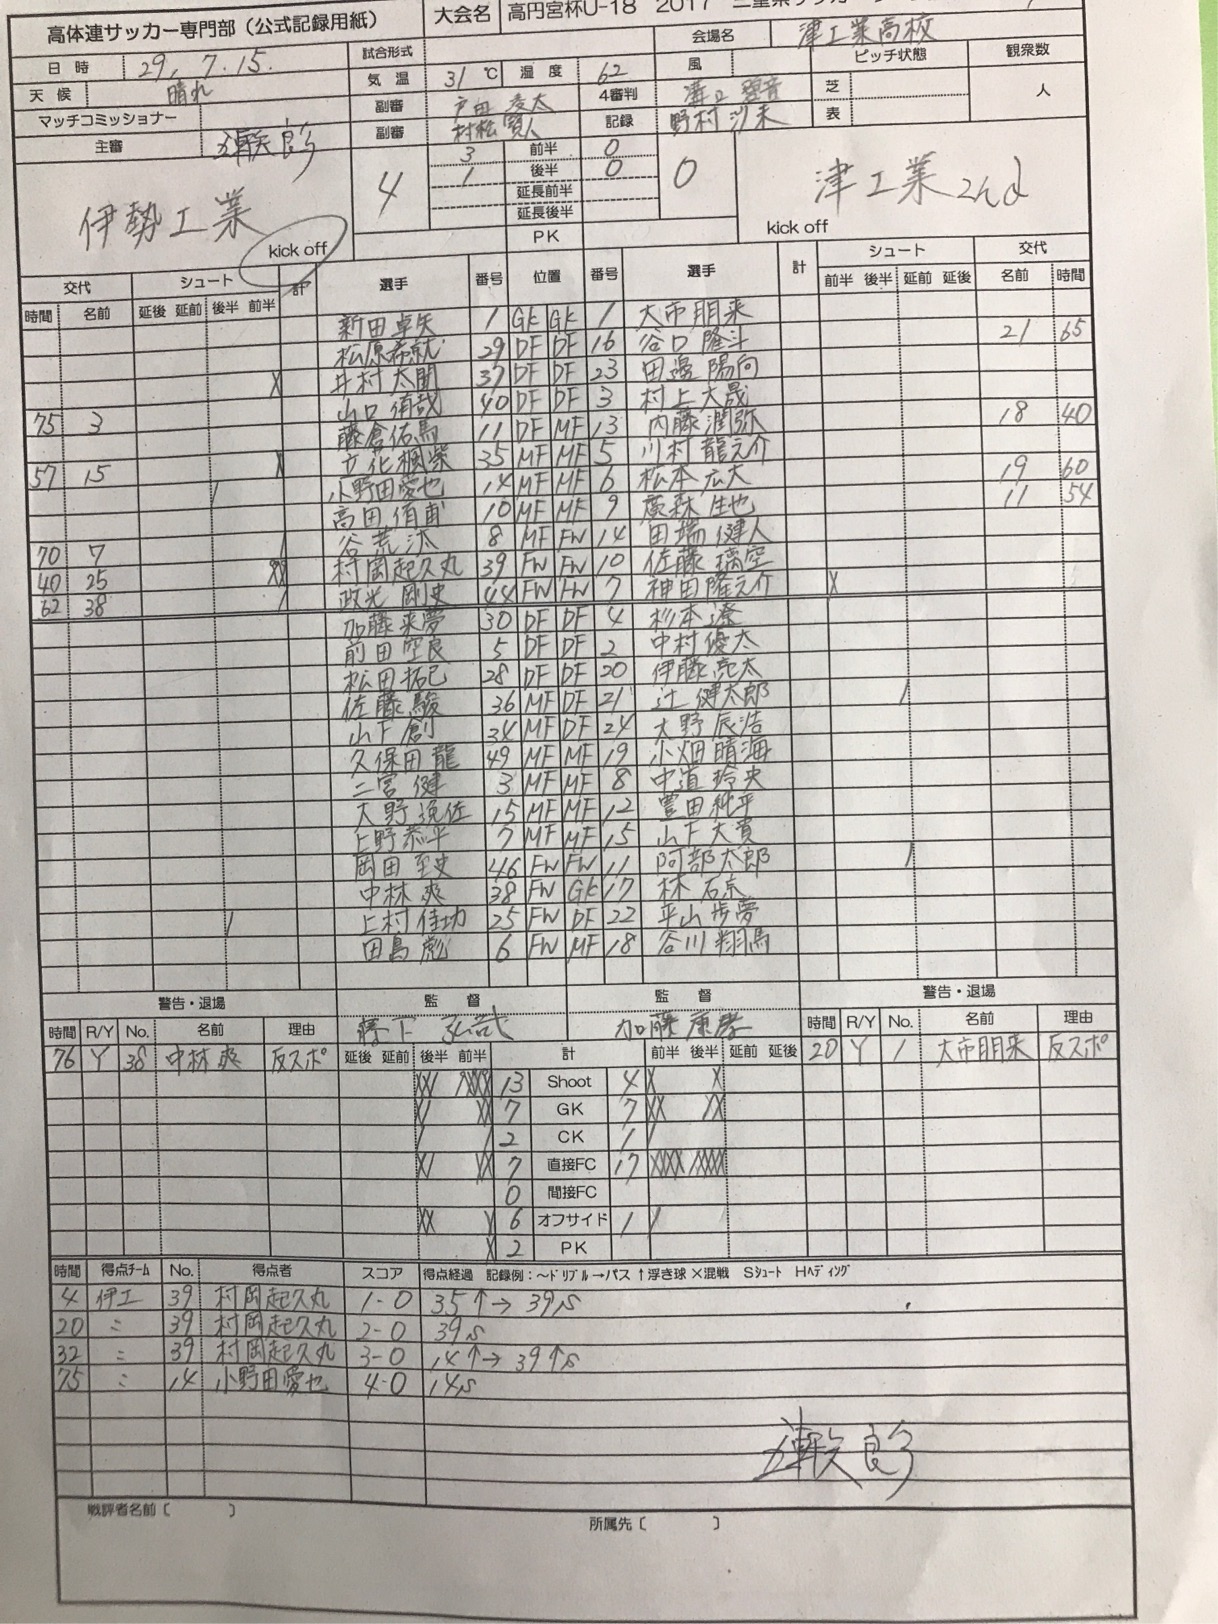 高体連サッカー専門部（公式記録用紙） 大会名 高円宮杯U-18 2017
日時 29, 7.15. 試合形式 会場名 津工業高校
天候 晴れ 気温 31 ℃ 湿度 62 風 ピッチ状態 観衆数
マッチコミッショナー 副審 4審判 芝 人
主審 副審 村松 賢人 記録 野村 沙未 表
伊勢工業 kick off 4 3 前半 0 0 津工業2nd kick off
1 後半 0
延長前半
延長後半
PK
交代 シュート 計 選手 番号 位置 番号 選手 計 シュート 交代
時間 名前 延後 延前 後半 前半 前半 後半 延前 延後 名前 時間
新田卓矢 1 GK GK 1 大市朋来
松原希就 29 DF DF 16 谷口隆斗 21 65
井村太閤 37 DF DF 23 田邉陽向
山口侑哉 40 DF DF 3 村上大晟
75 3 藤倉佑馬 11 DF MF 13 内藤潤弥 18 40
立花楓柴 35 MF MF 5 川村龍之介
57 15 小野田愛也 14 MF MF 6 松本広大 19 60
高田侑甫 10 MF MF 9 廣森生也 11 54
谷荒汰 8 MF FW 14 田端健人
70 7 村岡起久丸 39 FW FW 10 佐藤璃空
40 25 政光剛史 44 FW FW 7 神田隆之介
62 38 加藤来夢 30 DF DF 4 杉本遼
前田空良 5 DF DF 2 中村優太
松田拓巳 28 DF DF 20 伊藤亮太
佐藤駿 36 MF DF 21 辻健太郎
山下創 34 MF DF 24 大野辰浩
久保田龍 49 MF MF 19 小畑晴海
二宮健 3 MF MF 8 中道玲央
大野逸佐 15 MF MF 12 豊田純平
上野恭平 7 MF MF 15 山下大貴
岡田至史 46 FW FW 11 阿部太郎
中林爽 38 FW GK 17 林石京
上村佳功 25 FW DF 22 平山歩夢
田島彪 6 FW MF 18 谷川翔馬
警告・退場 監督 監督 警告・退場
時間 R/Y No. 名前 理由 加藤康孝 時間 R/Y No. 名前 理由
76 Y 38 中林爽 反スポ 延後 延前 後半 前半 計 前半 後半 延前 延後 20 Y 1 大市朋来 反スポ
13 Shoot 4
7 GK 7
2 CK 1
7 直接FC 17
0 間接FC
6 オフサイド 1
2 PK
時間 得点チーム No. 得点者 スコア 得点経過 記録例：～ドリブル→パス ↑浮き球 ×混戦 Sシュート Hヘディング
4 伊工 39 村岡起久丸 1-0 35↑→39S
20 〃 39 村岡起久丸 2-0 39S
32 〃 39 村岡起久丸 3-0 14↑→39↑S
75 〃 14 小野田愛也 4-0 14S
戦評者名前〔 〕 所属先〔 〕